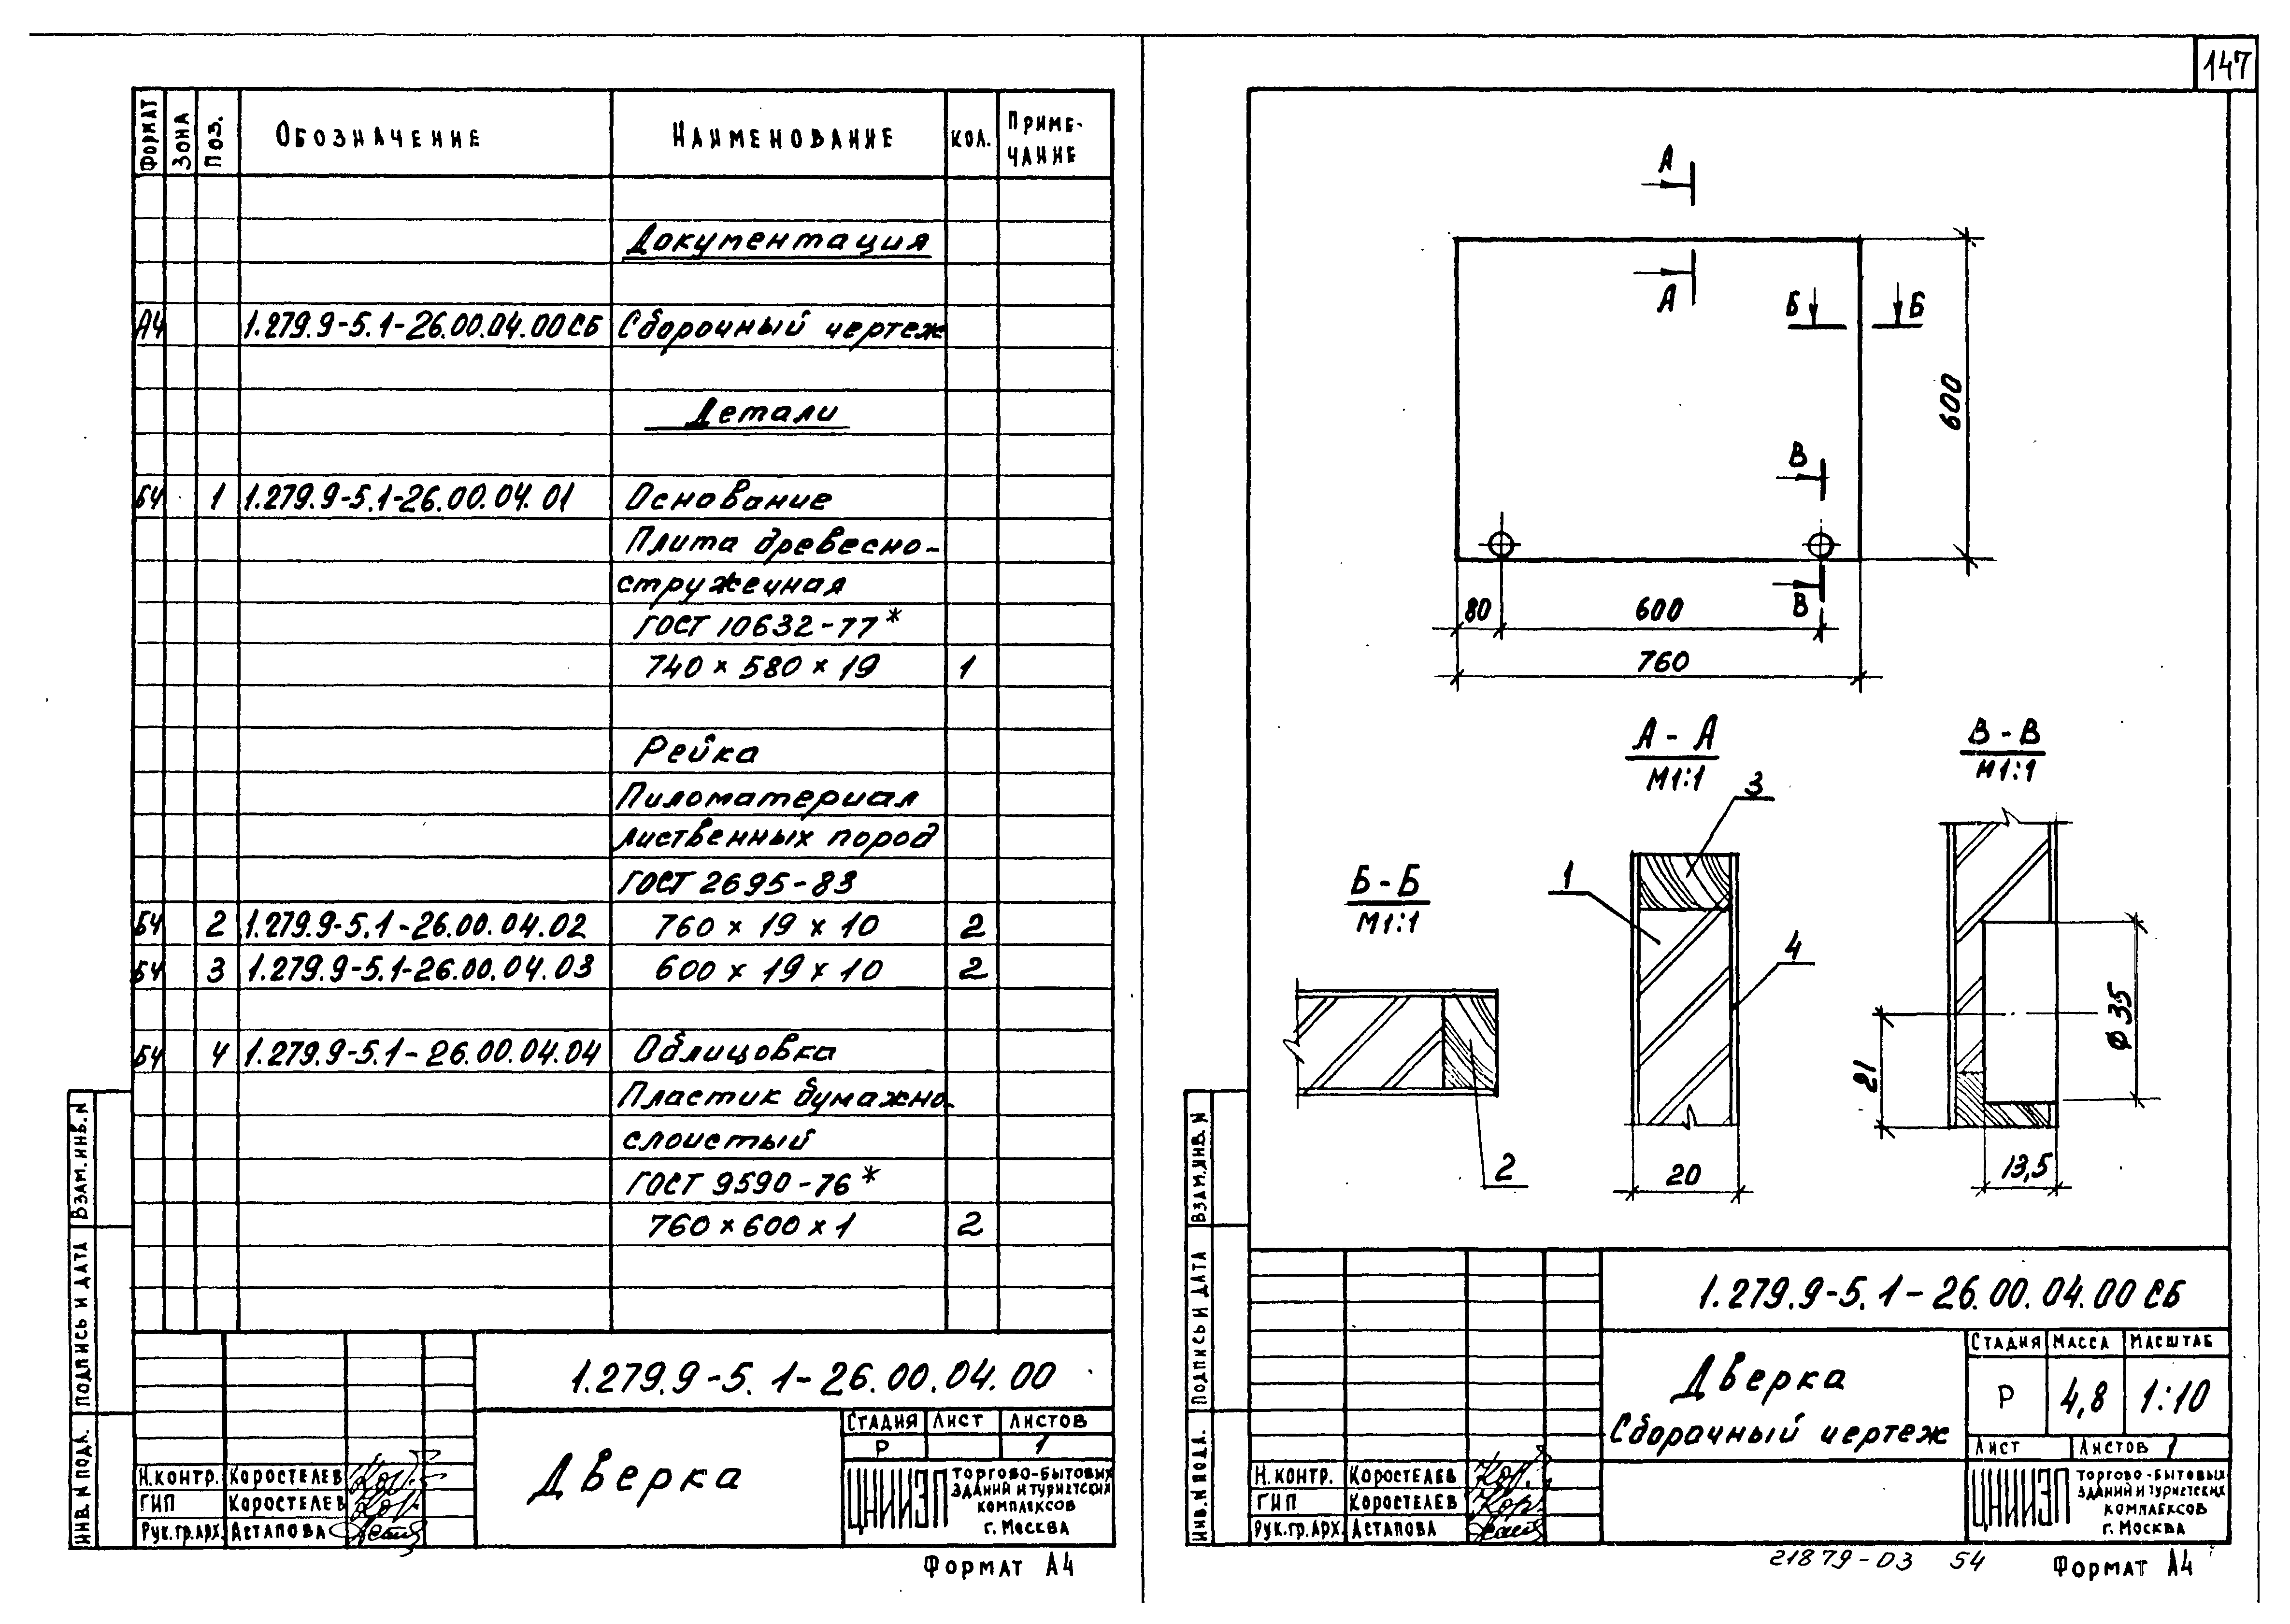 147
ФОРМАТ ЗОНА ПОЗ. ОБОЗНАЧЕНИЕ НАИМЕНОВАНИЕ КОЛ. ПРИМЕ-
ЧАНИЕ
Документация
А4 1.279.9-5.1-26.00.04.00СБ Сборочный чертеж
Детали
Б4 1 1.279.9-5.1-26.00.04.01 Основание
Плита древесно-
стружечная
ГОСТ 10632-77*
740 × 580 × 19 1
Рейка
Пиломатериал
лиственных пород
ГОСТ 2695-83
Б4 2 1.279.9-5.1-26.00.04.02 760 × 19 × 10 2
Б4 3 1.279.9-5.1-26.00.04.03 600 × 19 × 10 2
Б4 4 1.279.9-5.1-26.00.04.04 Облицовка
Пластик бумажно-
слоистый
ГОСТ 9590-76*
760 × 600 × 1 2
ВЗАМ.ИНВ.N
ПОДПИСЬ И ДАТА
ИНВ.N ПОДЛ.
1.279.9-5.1-26.00.04.00
Дверка
СТАДИЯ ЛИСТ ЛИСТОВ
Р 1
Н.КОНТР. КОРОСТЕЛЕВ
ГИП КОРОСТЕЛЕВ
РУК.ГР.АРХ. АСТАПОВА
ЦНИИЭП
ТОРГОВО-БЫТОВЫХ
ЗДАНИЙ И ТУРИСТСКИХ
КОМПЛЕКСОВ
Г. МОСКВА
ФОРМАТ А4
А
А
Б Б
В
В
600
80 600
760
А - А
М1:1
В - В
М1:1
Б - Б
М1:1
3
1
4
2
20
21
Ø35
13,5
ВЗАМ.ИНВ.N
ПОДПИСЬ И ДАТА
ИНВ.N ПОДЛ.
1.279.9-5.1-26.00.04.00СБ
Дверка
Сборочный чертеж
СТАДИЯ МАССА МАСШТАБ
Р 4,8 1:10
ЛИСТ ЛИСТОВ 1
Н.КОНТР. КОРОСТЕЛЕВ
ГИП КОРОСТЕЛЕВ
РУК.ГР.АРХ. АСТАПОВА
ЦНИИЭП
ТОРГОВО-БЫТОВЫХ
ЗДАНИЙ И ТУРИСТСКИХ
КОМПЛЕКСОВ
Г. МОСКВА
21879-03 54
ФОРМАТ А4